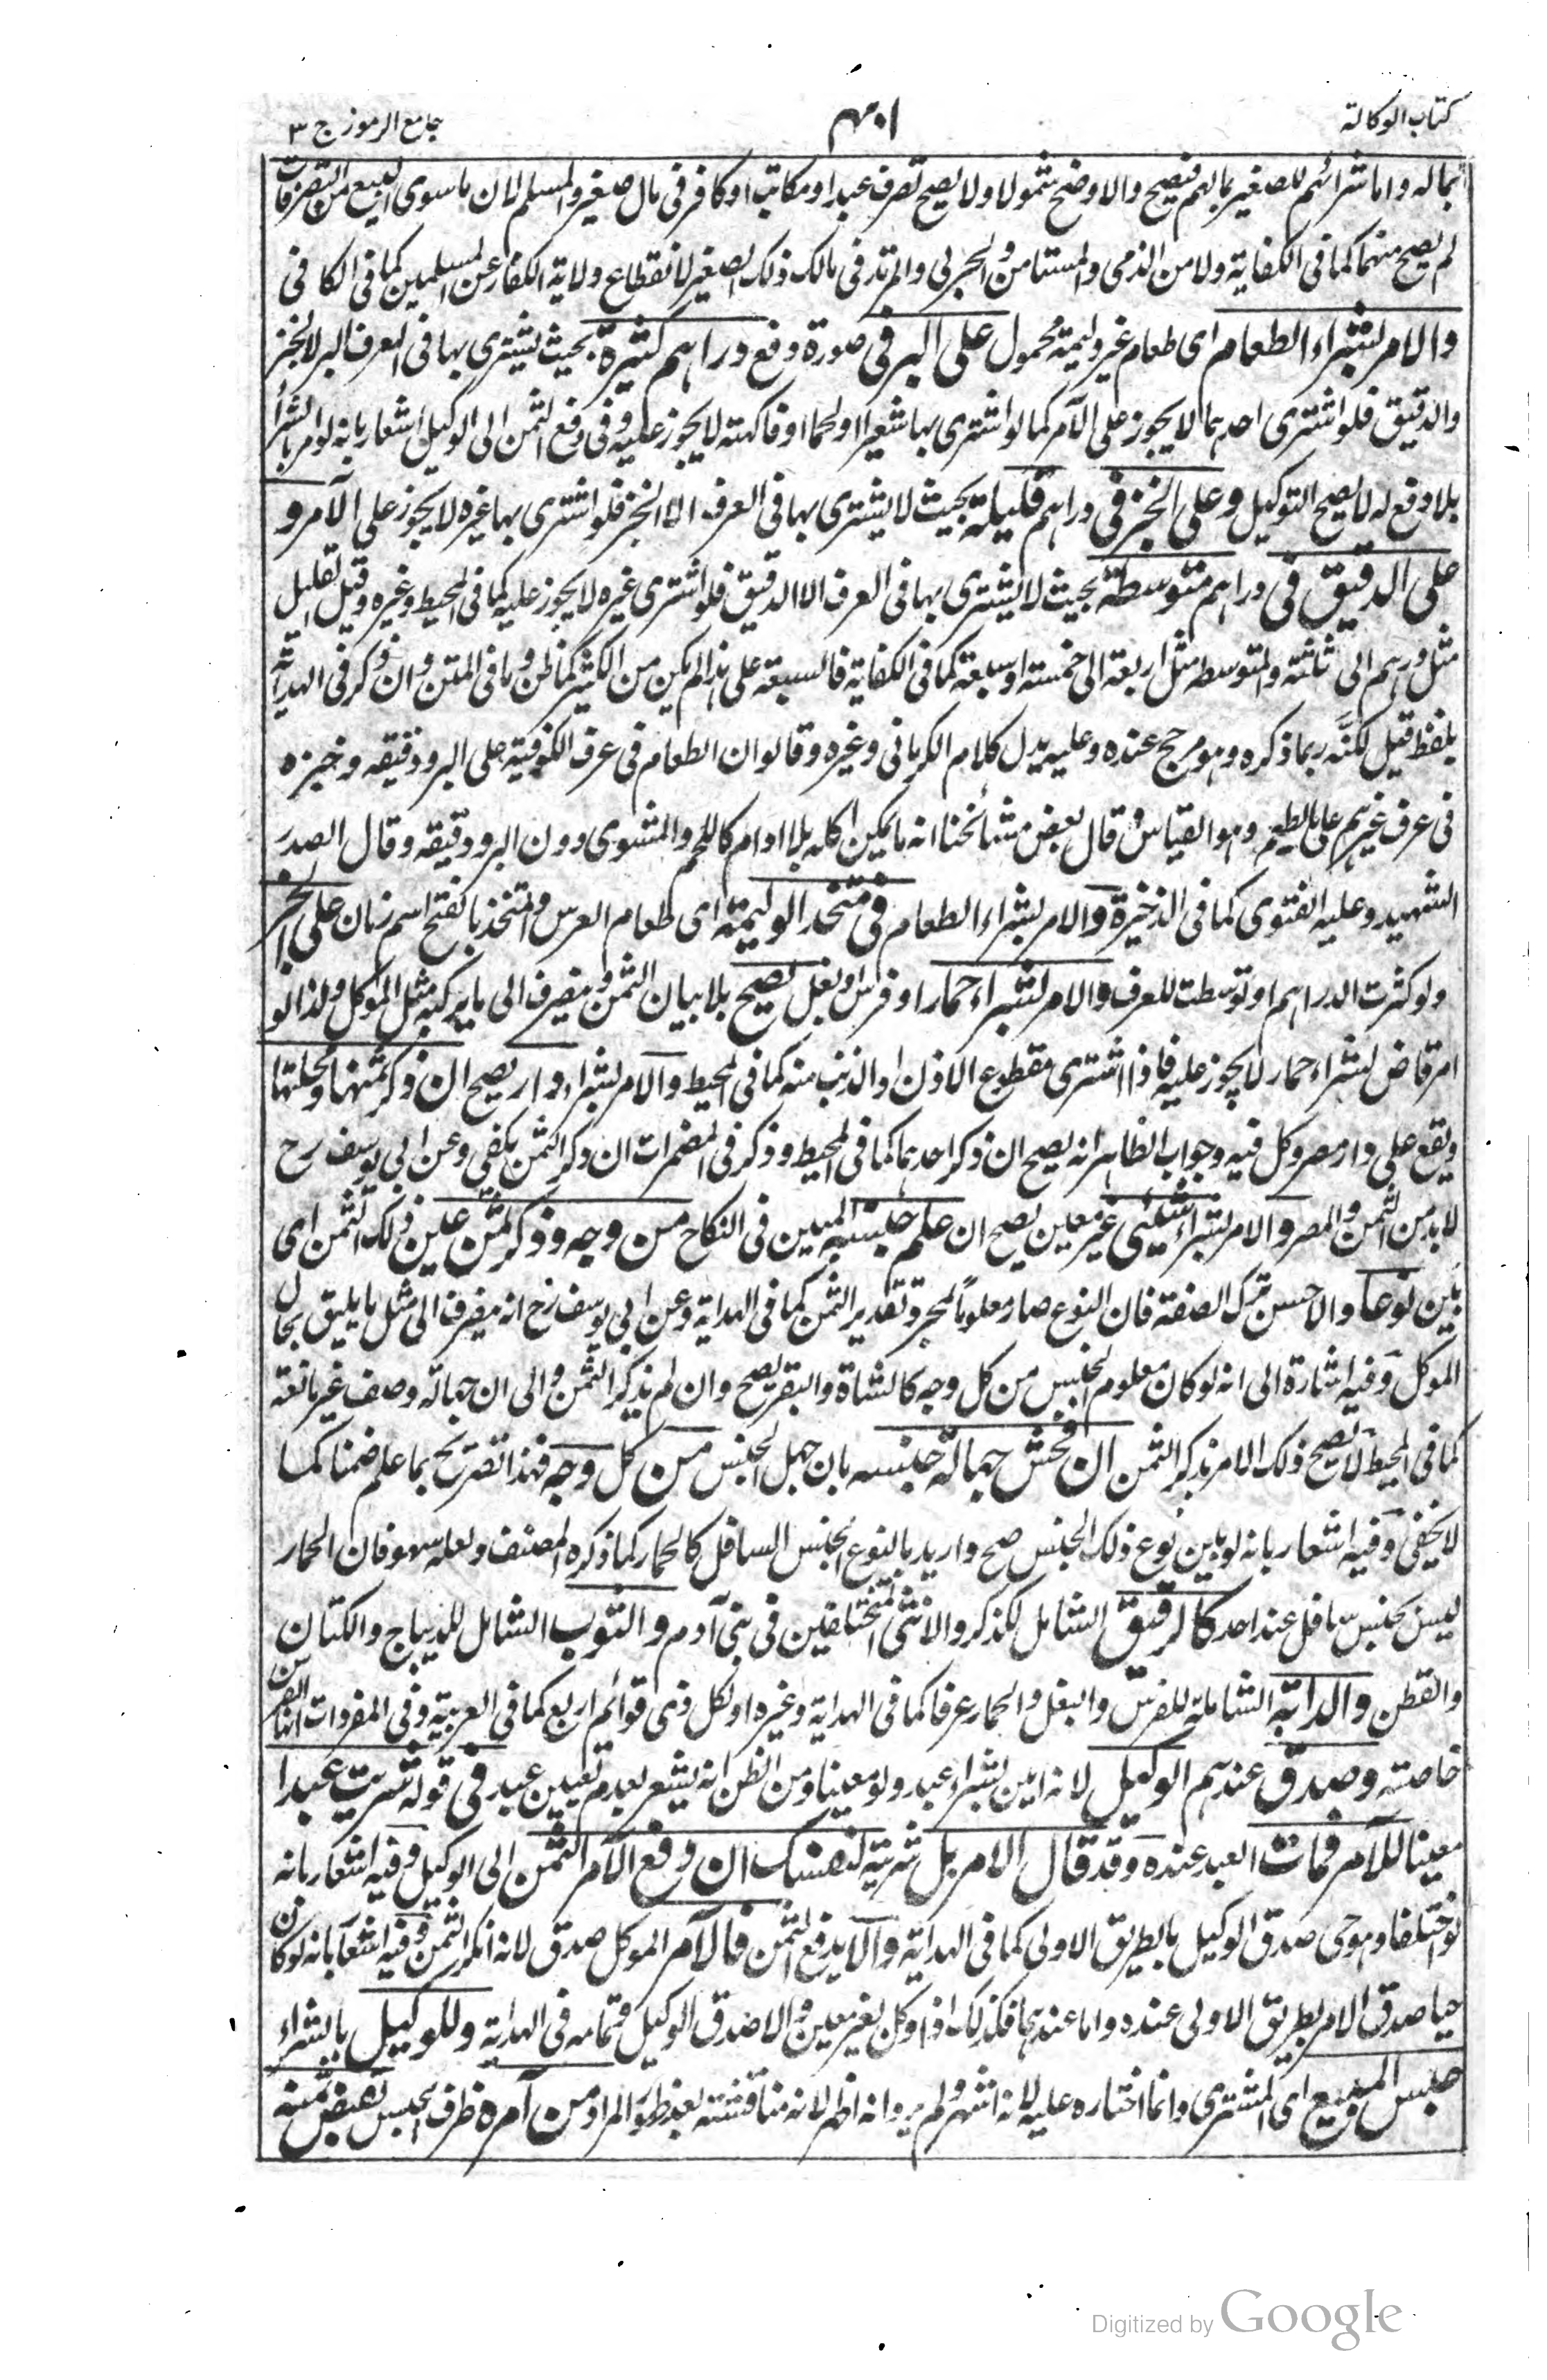 كتاب الوكالة
٤٠١
جامع الرموز ج ٣
بماله واما شرائهم للصغير بمالهم فيصح والاوضح شمولا ولا يصح تصرف عبد او مكاتب او كافر فى مال صغير والمسلم لان ما سوى البيع من التصرفات
لم يصح منهما كما فى الكفاية ولا من الذمى والمستامن والحربى والمرتد فى مالك ذلك الصغير لانقطاع ولاية الكفار عن المسلمين كما فى الكافى
والامر بشراء الطعام اى طعام غير وليمة محمول على البر فى صورة دفع دراهم كثيرة بحيث يشترى بها فى العرف البر لا الخبز
والدقيق فلو اشترى احدهما لا يجوز على الآمر كما لو اشترى بها شعيرا او لحما او فاكهته لا يجوز عليه وفى دفع الثمن الى الوكيل اشعار بانه لو امر بالشراء
بلا دفع له لا يصح التوكيل وعلى الخبز فى دراهم قليلة بحيث لا يشترى بها فى العرف الا الخبز فلو اشترى بها غيره لا يجوز على الآمر و
على الدقيق فى دراهم متوسطة بحيث لا يشترى بها فى العرف الا الدقيق فلو اشترى غيره لا يجوز عليه كما فى المحيط وغيره وقيل القليل
مثل درهم الى ثلثة والمتوسطه مثل اربعة الى خمسته او سبعة كما فى الكفاية فالسبعة على هذا لم يكن من الكثير كما ظن وما فى المتن وان ذكر فى الهداية
بلفظ قيل لكنه ربما ذكره وهو مرجح عنده وعليه يدل كلام الكرمانى وغيره وقالوا ان الطعام فى عرف الكوفية على البر ودقيقه وخبزه
فى عرف غيرهم على ما يطعم وهو القياس وقال بعض مشائخنا انه ما يمكن اكله بلا ادام كاللحم والمشوى دون البر ودقيقه وقال الصدر
الشهيد وعليه الفتوى كما فى الذخيرة والامر بشراء الطعام فى متخذ الوليمة اى طعام العرس والمتخذ بالفتح اسم زمان على الخبز
ولو كثرت الدراهم او توسطت للعرف والامر بشراء حمار او فرس او بغل يصح بلا بيان الثمن ويصرف الى ما يركبه مثل الموكل ولذا لو
امر قاض بشراء حمار لا يجوز عليه فاذا اشترى مقطوع الاذن او الذنب منه كما فى المحيط والامر بشراء دار يصح ان ذكر ثمنها ومحلتها
ويقع على دار مصر وكل فيه وجواب الظاهر انه يصح ان ذكر احدهما كما فى المحيط وذكر فى المضمرات ان ذكر الثمن يكفى وعن ابى يوسف رح
لا بد من الثمن والمصر والامر بشراء شيئى غير معين يصح ان علم جنسه المبين فى النكاح من وجه وذكر ثمن عين ذلك الثمن اى
بين نوعا والاحسن ترك الصفة فان النوع صار معلوما بمجرد تقدير الثمن كما فى الهداية وعن ابى يوسف رح انه يصرف الى مثل ما يليق بحال
الموكل وفيه اشارة الى انه لو كان معلوم الجنس من كل وجه كالشاة والبقر يصح وان لم يذكر الثمن والى ان جهالة وصف غير مانعة
كما فى المحيط لا يصح ذلك الامر بذكر الثمن ان فحش جهالة جنسه بان جهل الجنس من كل وجه فهذا تصريح بما علم ضمنا كما
لا يخفى وفيه اشعار بانه لو بين نوع ذلك الجنس صح واريد بالنوع الجنس السافل كالحمار كما ذكره المصنف ولعله سهو فان الحمار
ليس بجنس سافل عند احد كالرقيق الشامل للذكر والانثى المختلفين فى بنى آدم والثوب الشامل للديباج والكتان
والقطن والدابة الشاملة للفرس والبغل والحمار عرفا كما فى الهداية وغيره او لكل ذى قوائم اربع كما فى العربية وفى المفردات انها الفرس
خاصته وصدق عندهم الوكيل لانه امين بشراء عبد ولو معينا ومن الظن انه يشعر بعدم تعيين عبد فى قوله شريت عبدا
معينا للآمر فمات العبد عنده وقد قال الامر بل شريته لنفسك ان دفع الآمر الثمن الى الوكيل وفيه اشعار بانه
لو اختلفا وهو حى صدق الوكيل بالطريق الاولى كما فى الهداية والا يدفع الثمن فالآمر الموكل صدق لانه انكر الثمن وفيه اشعار بانه لو كان
حيا صدق الامر بطريق الاولى عنده واما عندهما فكذلك اذا وكل بغير معين والا صدق الوكيل وتمامه فى الهداية وللوكيل بالشراء
حبس المبيع اى المشترى وانما اختاره عليه لانه اشهر ولم يروا انه اظهر لانه مناقشته بعد ظهور المراد من آمره ظرف الحبس لقبض ثمنه
Digitized by Google